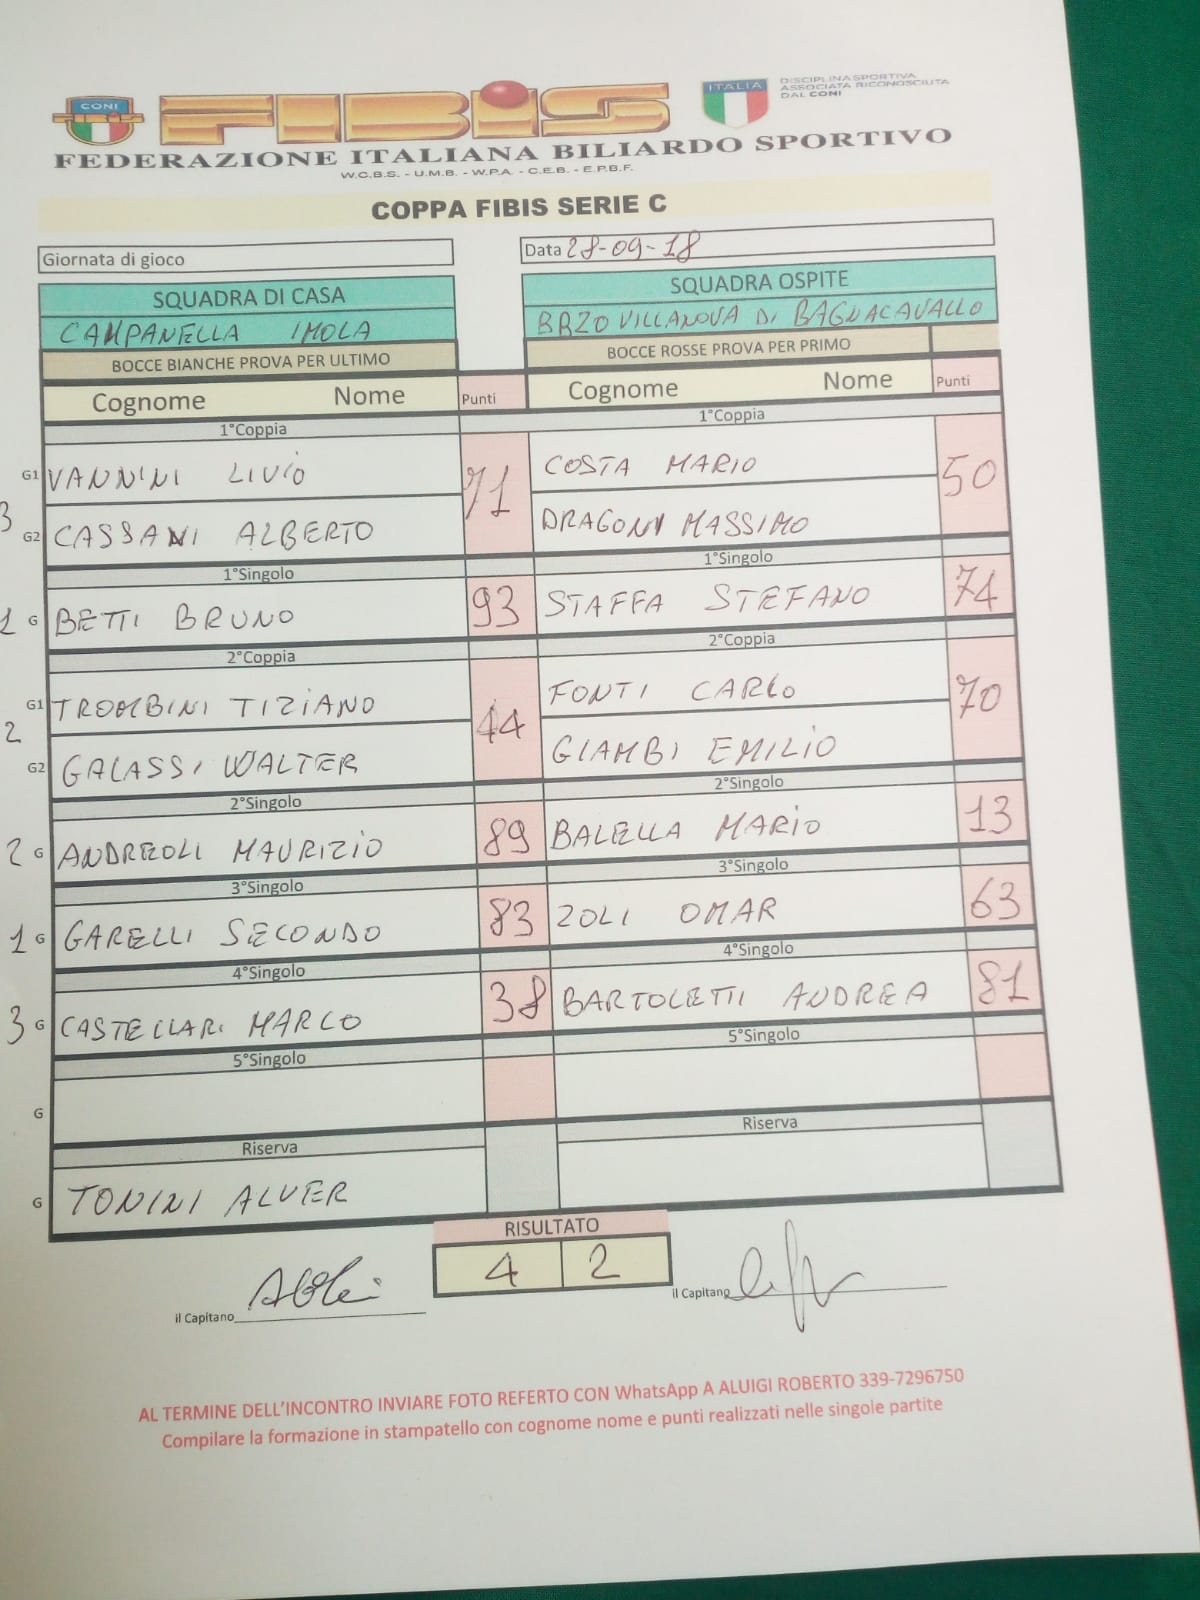 CONI
FIBIS
ITALIA
DISCIPLINA SPORTIVA
ASSOCIATA RICONOSCIUTA
DAL CONI
FEDERAZIONE ITALIANA BILIARDO SPORTIVO
W.C.B.S. - U.M.B. - W.P.A. - C.E.B. - E.P.B.F.
COPPA FIBIS SERIE C
Giornata di gioco
Data 28-09-18
SQUADRA DI CASA SQUADRA OSPITE
CAMPANELLA IMOLA BRZO VILLANOVA DI BAGNACAVALLO
BOCCE BIANCHE PROVA PER ULTIMO BOCCE ROSSE PROVA PER PRIMO
Cognome Nome Punti Cognome Nome Punti
1°Coppia 1°Coppia
G1 VANNINI LIVIO 71 COSTA MARIO 50
3
G2 CASSANI ALBERTO DRAGONI MASSIMO
1°Singolo 1°Singolo
1 G BETTI BRUNO 93 STAFFA STEFANO 74
2°Coppia 2°Coppia
G1 TROMBINI TIZIANO 44 FONTI CARLO 70
2
G2 GALASSI WALTER GIAMBI EMILIO
2°Singolo 2°Singolo
2 G ANDREOLI MAURIZIO 89 BALELLA MARIO 13
3°Singolo 3°Singolo
1 G GARELLI SECONDO 83 ZOLI OMAR 63
4°Singolo 4°Singolo
3 G CASTELLARI MARCO 38 BARTOLETTI ANDREA 81
5°Singolo 5°Singolo
G
Riserva Riserva
G TONINI ALVER
RISULTATO
4 2
il Capitano il Capitano
AL TERMINE DELL'INCONTRO INVIARE FOTO REFERTO CON WhatsApp A ALUIGI ROBERTO 339-7296750
Compilare la formazione in stampatello con cognome nome e punti realizzati nelle singole partite